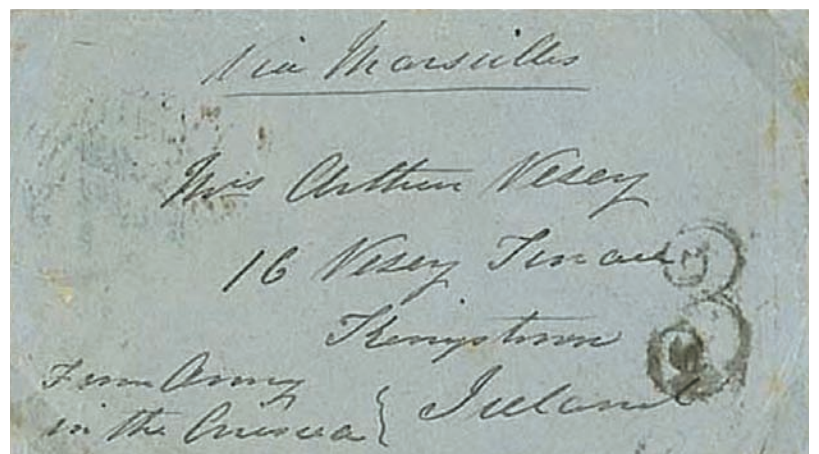 Via Marseilles
Mrs Arthur Vesey
16 Vesey Terrace
Kingstown
Ireland
From Army
in the Crimea